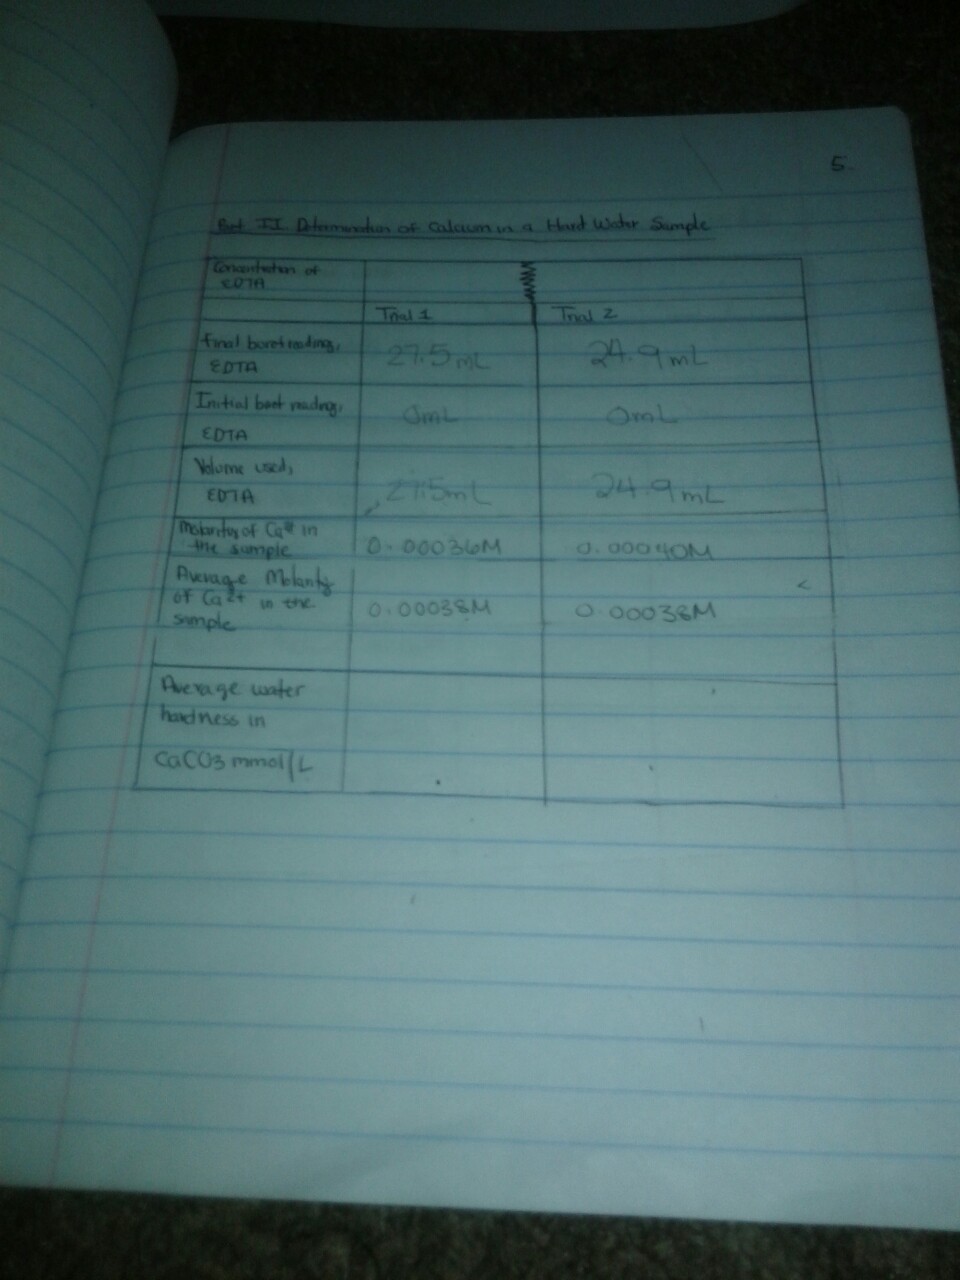 5.
Part II. Determination of Calcium in a Hard Water Sample
Concentration of
EDTA
Trial 1 Trial 2
final buret reading, 27.5 mL 24.9 mL
EDTA
Initial buret reading, 0mL 0mL
EDTA
Volume used,
EDTA 27.5mL 24.9 mL
Molarity of Ca in
the sample 0.00036M 0.00040M
Average Molarity
of Ca2+ in the 0.00038M 0.00038M
sample
Average water
hardness in
CaCO3 mmol/L